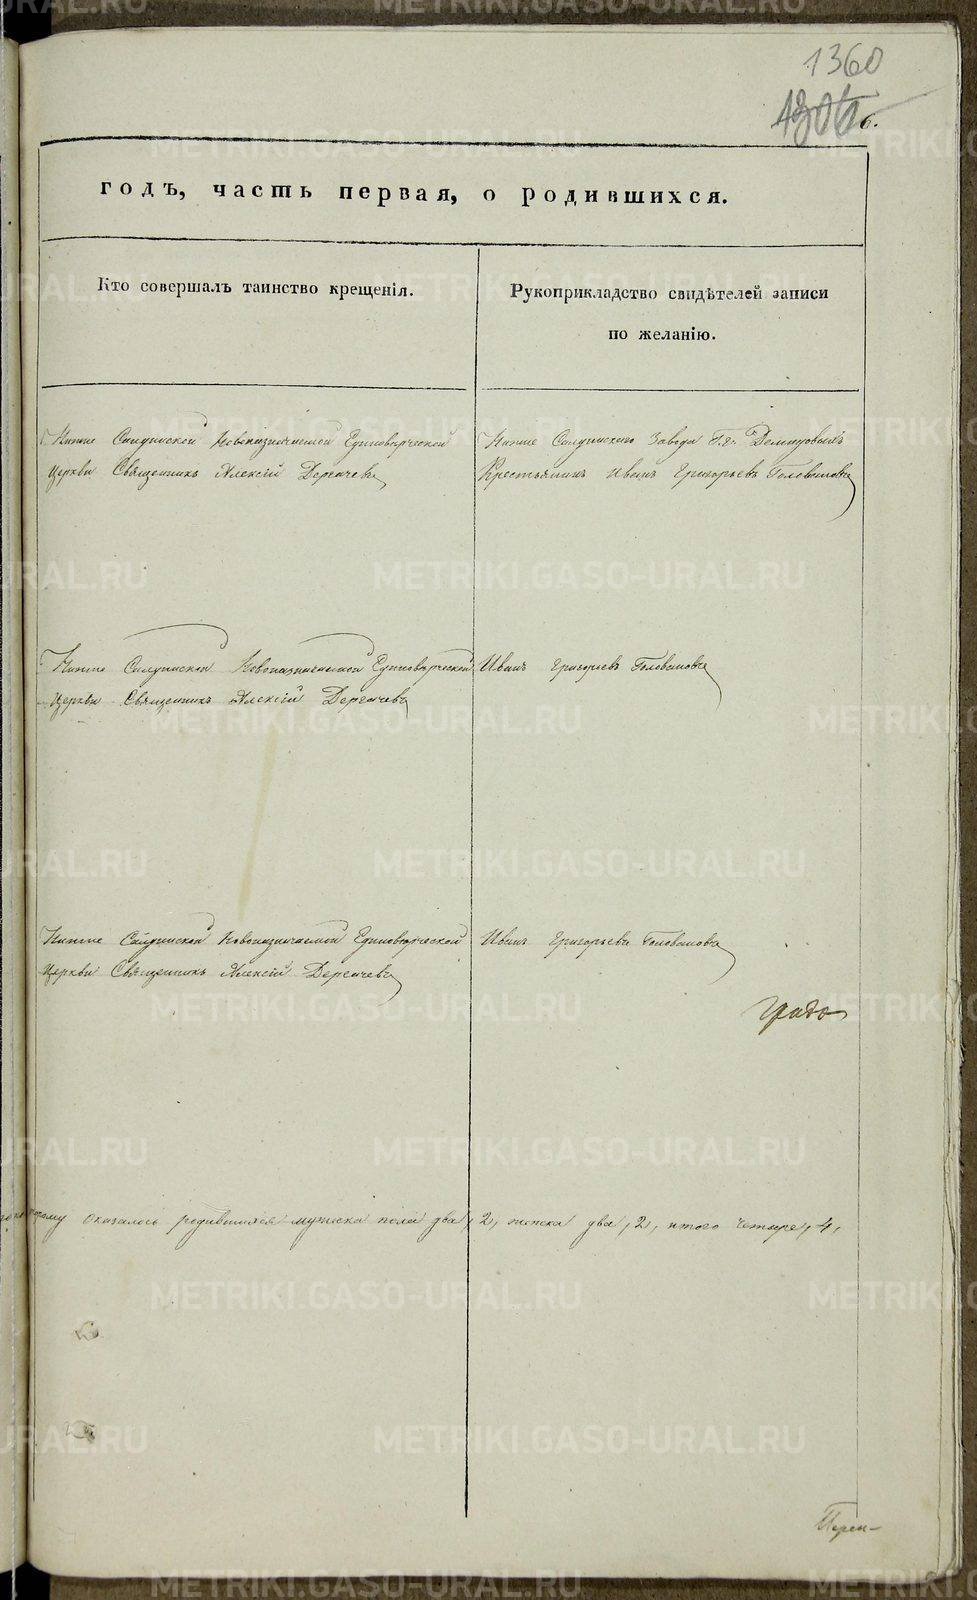 1360
6.
годъ, часть первая, о родившихся.
Кто совершалъ таинство крещенія.
Рукоприкладство свидѣтелей записи
по желанію.
Нижне Салдинской Новоназначаемой Единовѣрческой
Церкви Священникъ Алексій Дерячевъ
Нижне Салдинскаго Завода Г.г. Демидовыхъ
Крестьянинъ Иванъ Григорьевъ Головановъ
Нижне Салдинской Новоназначаемой Единовѣрческой
Церкви Священникъ Алексій Дерячевъ
Иванъ Григорьевъ Головановъ
Нижне Салдинской Новоназначаемой Единовѣрческой
Церкви Священникъ Алексій Дерячевъ
Иванъ Григорьевъ Головановъ
оказалось родившихся мужеска пола два, 2, женска два, 2, итого четыре, 4,
METRIKI.GASO-URAL.RU